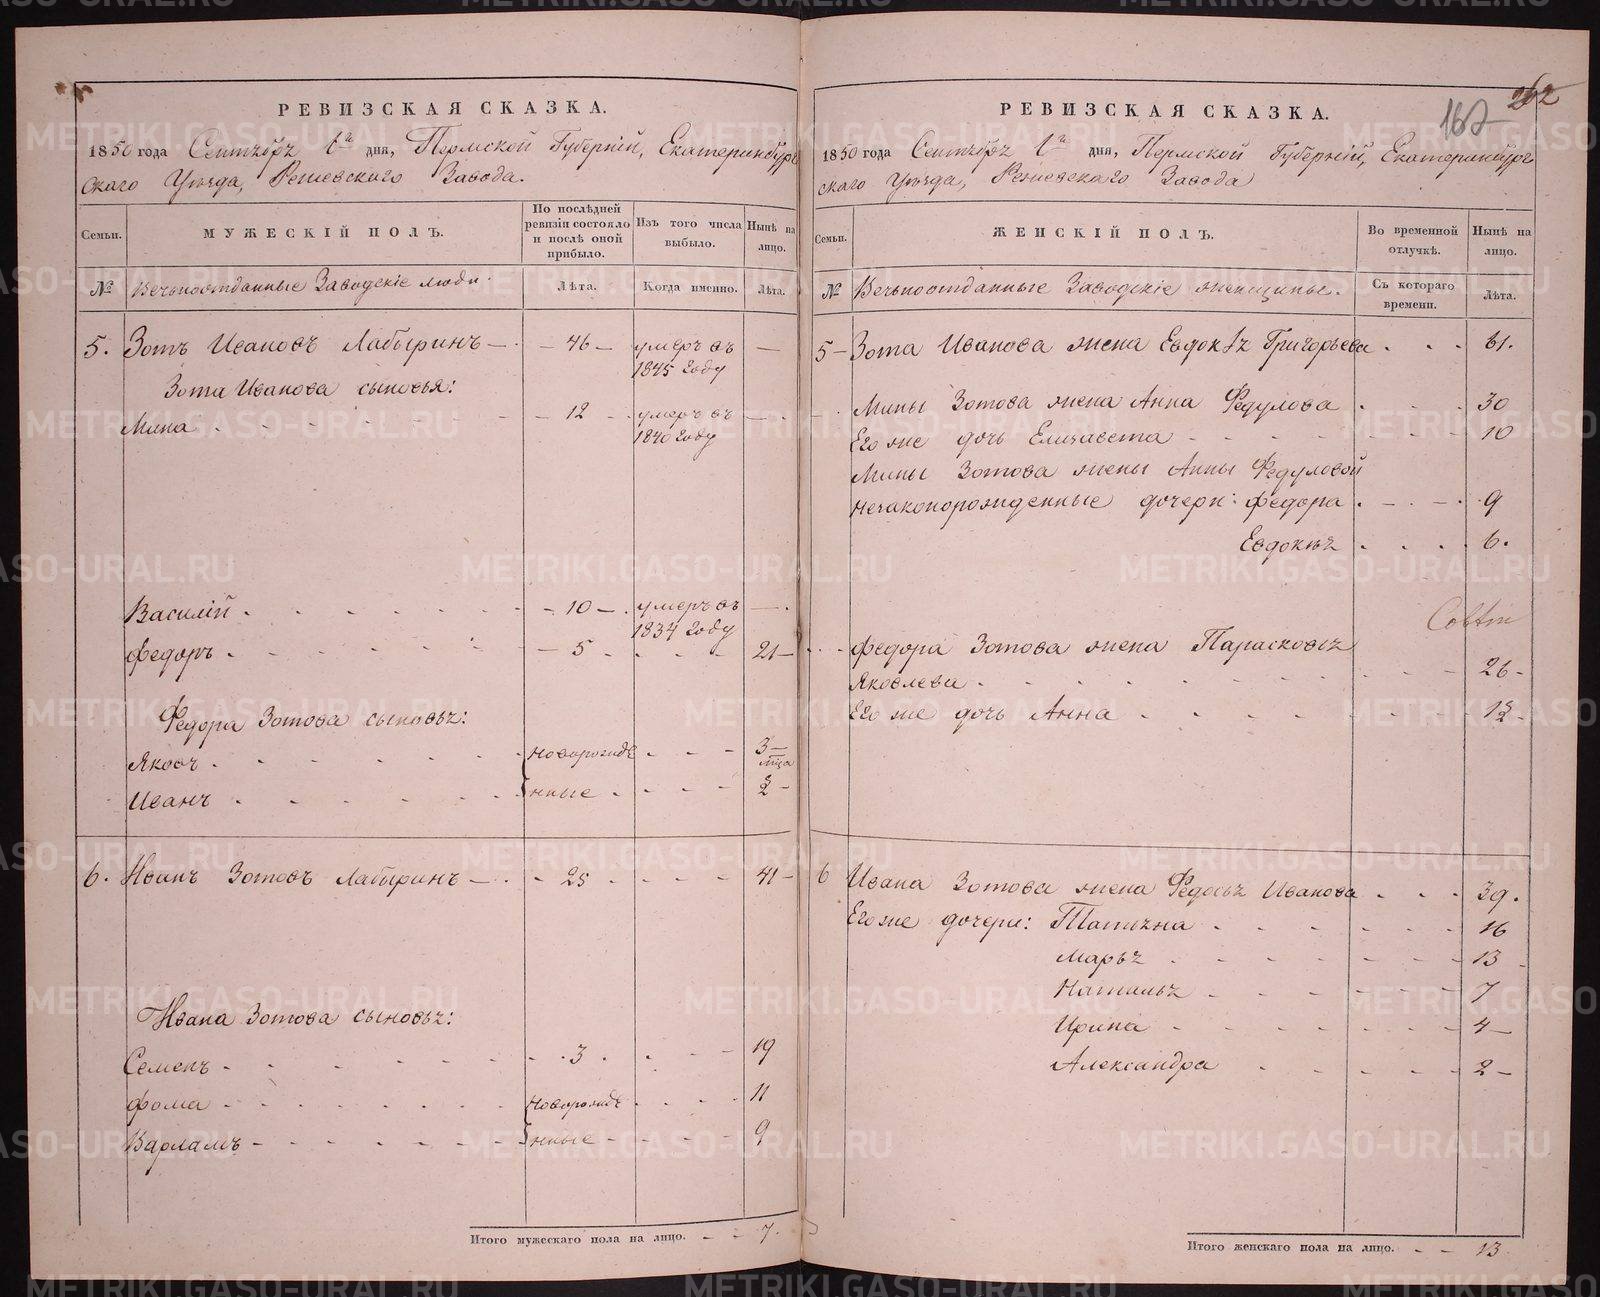 РЕВИЗСКАЯ СКАЗКА.
1850 года Сентября 1го дня, Пермской Губерніи, Екатеринбург
скаго Уѣзда, Режевскаго Завода.
Семьи.
МУЖЕСКІЙ ПОЛЪ.
По послѣдней ревизіи состояло и послѣ оной прибыло.
Изъ того числа выбыло.
Нынѣ на лицо.
№
Вечноотданные Заводскіе люди.
Лѣта.
Когда именно.
Лѣта.
5. Зотъ Ивановъ Лабыринъ — 46 — умеръ въ 1845 году —
Зота Иванова сыновья:
Мина - - - 12 - умеръ въ 1840 году —
Василій - - - 10 - умеръ въ 1834 году —
Федоръ - - - 5 - - - 21 -
Федора Зотова сыновья:
Яковъ - - - новорожде - - - 3 — мца
Иванъ - - - нные - - - 2 -
6. Иванъ Зотовъ Лабыринъ — 25 - - - 41 -
Ивана Зотова сыновья:
Семенъ - - - 3 - - - 19
Фома - - - новорожде - - - 11
Варламъ - - - нные - - - 9
Итого мужескаго пола на лицо. - - 7.
167
262
РЕВИЗСКАЯ СКАЗКА.
1850 года Сентября 1го дня, Пермской Губерніи, Екатеринбург
скаго Уѣзда, Режевскаго Завода
Семьи.
ЖЕНСКІЙ ПОЛЪ.
Во временной отлучкѣ.
Нынѣ на лицо.
№
Вечноотданные Заводскіе женщины.
Съ котораго времени.
Лѣта.
5 - Зота Иванова жена Евдокья Григорьева - - - 61.
Мины Зотова жена Анна Федулова - - - 30
Его же дочь Елизавета - - - 10
Мины Зотова жены Анны Федуловой
незаконорожденные дочери: Федора - - - 9
Евдокья - - - 6.
Федора Зотова жена Парасковья
Яковлева - - - 26 -
Его же дочь Анна - - - 1½ -
6 Ивана Зотова жена Федосья Иванова - - - 39.
Его же дочери: Татьяна - - - 16
Марья - - - 13
Наталья - - - 7
Ирина - - - 4 —
Александра - - - 2 —
Итого женскаго пола на лицо. - - 13
METRIKI.GASO-URAL.RU